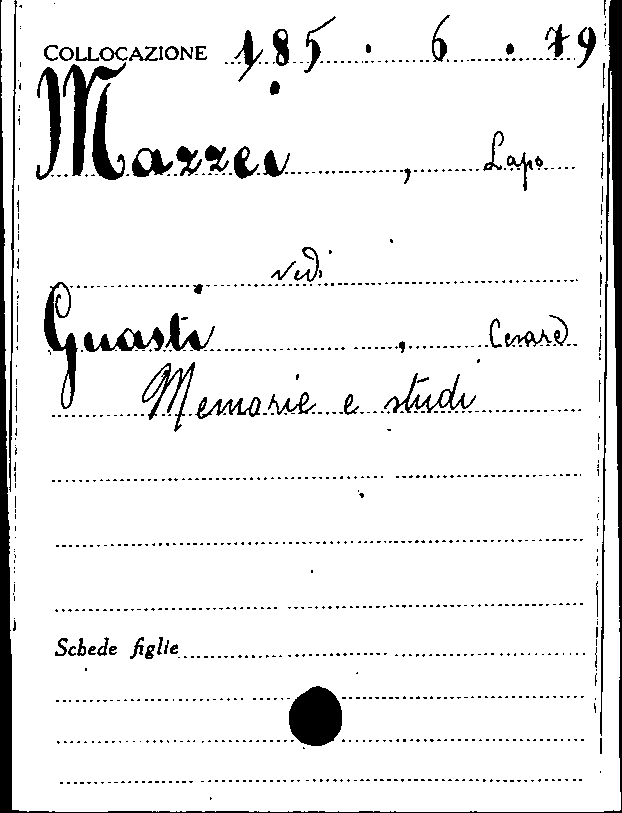 COLLOCAZIONE 185 . 6 . 79
Mazzei , Lapo
vedi
Guasti , Cesare
Memorie e studi
Schede figlie